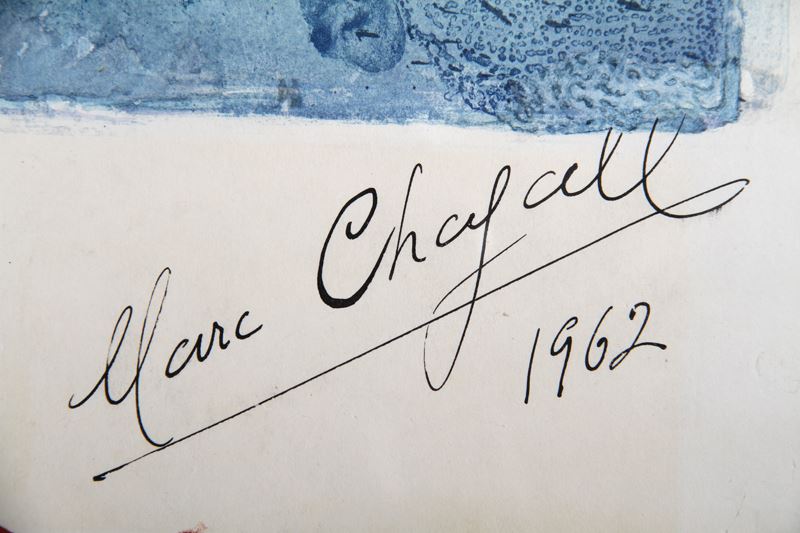 Marc Chagall
1962